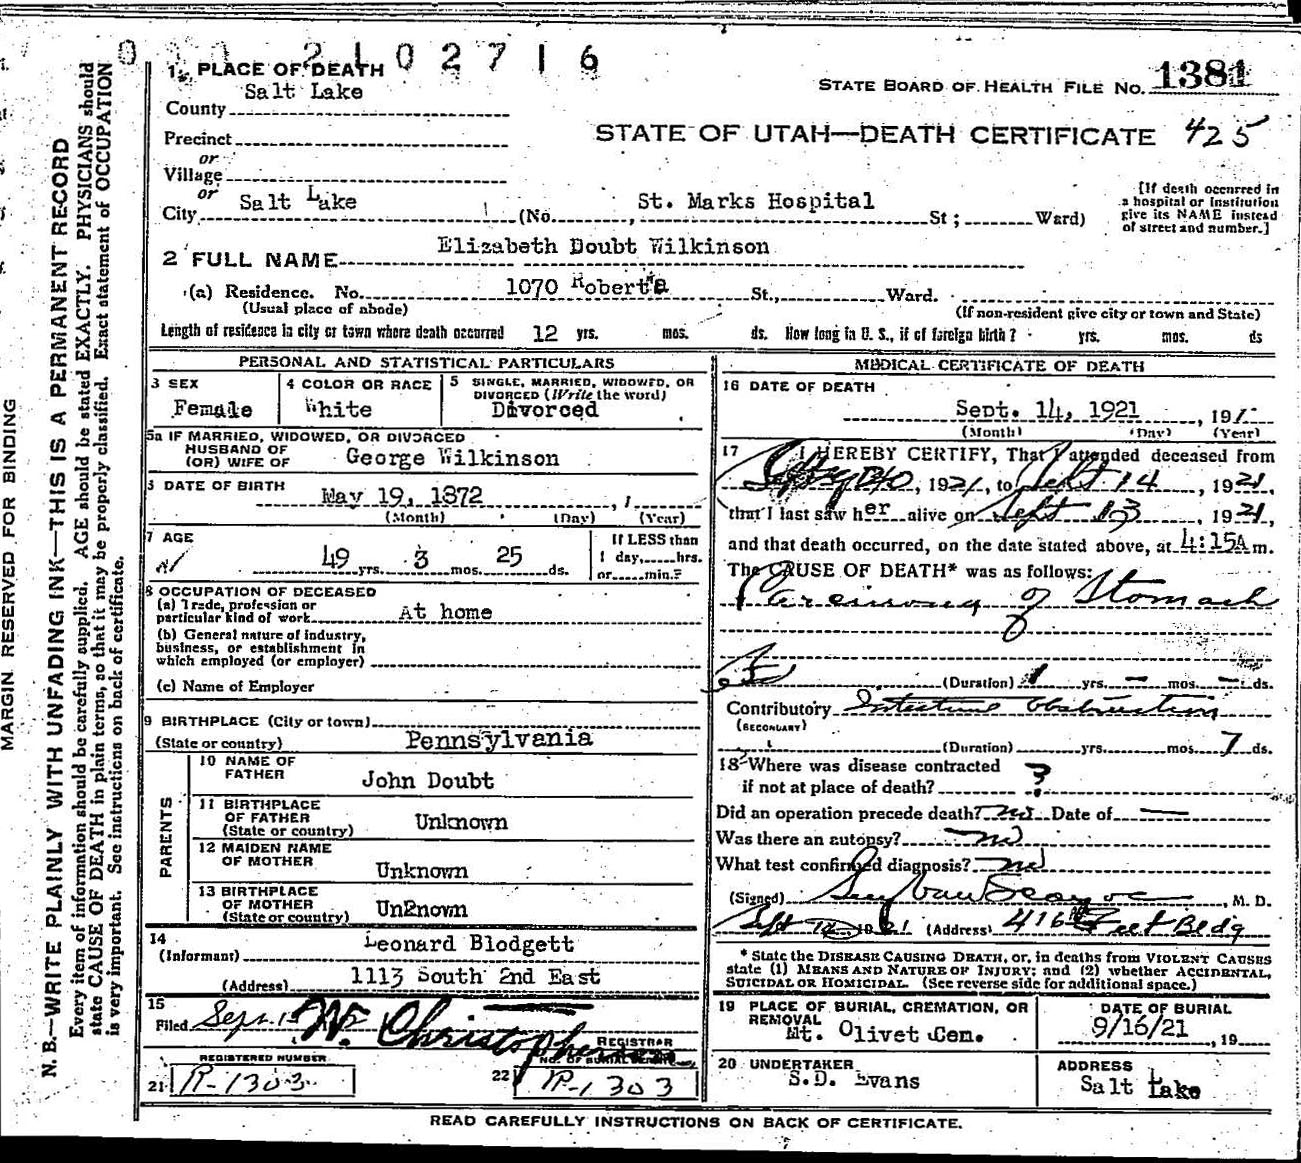 2102716
1. PLACE OF DEATH
STATE BOARD OF HEALTH FILE NO. 1381
County Salt Lake
STATE OF UTAH—DEATH CERTIFICATE 425
Precinct
or
Village
or
City Salt Lake (No. St. Marks Hospital St; Ward)
[If death occurred in
a hospital or institution
give its NAME instead
of street and number.]
2 FULL NAME Elizabeth Doubt Wilkinson
(a) Residence. No. 1070 Roberta St., Ward.
(Usual place of abode)
(If non-resident give city or town and State)
Length of residence in city or town where death occurred 12 yrs. mos. ds. How long in U. S., if of foreign birth? yrs. mos. ds
PERSONAL AND STATISTICAL PARTICULARS
3 SEX
Female
4 COLOR OR RACE
White
5 SINGLE, MARRIED, WIDOWED, OR
DIVORCED (Write the word)
Divorced
5a IF MARRIED, WIDOWED, OR DIVORCED
HUSBAND OF
(OR) WIFE OF George Wilkinson
DATE OF BIRTH May 19, 1872
(Month) (Day) (Year)
7 AGE
49 yrs. 3 mos. 25 ds.
If LESS than
1 day, hrs.
or min.?
8 OCCUPATION OF DECEASED
(a) Trade, profession or
particular kind of work At home
(b) General nature of industry,
business, or establishment in
which employed (or employer)
(c) Name of Employer
9 BIRTHPLACE (City or town)
(State or country) Pennsylvania
PARENTS
10 NAME OF
FATHER John Doubt
11 BIRTHPLACE
OF FATHER
(State or country) Unknown
12 MAIDEN NAME
OF MOTHER Unknown
13 BIRTHPLACE
OF MOTHER
(State or country) Un2nown
14
(Informant) Leonard Blodgett
(Address) 1113 South 2nd East
15
Filed Sept. W. Christopherson
REGISTRAR
REGISTERED NUMBER
21 R-1303
22 R-1303
MEDICAL CERTIFICATE OF DEATH
16 DATE OF DEATH
Sept. 14, 1921, 191
(Month) (Day) (Year)
17 I HEREBY CERTIFY, That I attended deceased from
, 1921, to Sept 14, 1921,
that I last saw her alive on Sept 13, 1921,
and that death occurred, on the date stated above, at 4:15A m.
The CAUSE OF DEATH* was as follows:
of Stomach
(Duration) 1 yrs. — mos. — ds.
Contributory Intestine Obstruction
(SECONDARY)
(Duration) yrs. mos. 7 ds.
18 Where was disease contracted
if not at place of death? ?
Did an operation precede death? no Date of —
Was there an autopsy? no
What test confirmed diagnosis? no
(Signed) M. D.
Sept (Address) 416 Bldg
* State the DISEASE CAUSING DEATH, or, in deaths from VIOLENT CAUSES
state (1) MEANS AND NATURE OF INJURY; and (2) whether ACCIDENTAL,
SUICIDAL OR HOMICIDAL. (See reverse side for additional space.)
19 PLACE OF BURIAL, CREMATION, OR
REMOVAL
Mt. Olivet Cem.
DATE OF BURIAL
9/16/21, 19
20 UNDERTAKER
S.D. Evans
ADDRESS
Salt Lake
READ CAREFULLY INSTRUCTIONS ON BACK OF CERTIFICATE.
MARGIN RESERVED FOR BINDING
N. B.—WRITE PLAINLY WITH UNFADING INK—THIS IS A PERMANENT RECORD
Every item of information should be carefully supplied. AGE should be stated EXACTLY. PHYSICIANS should
state CAUSE OF DEATH in plain terms, so that it may be properly classified. Exact statement of OCCUPATION
is very important. See instructions on back of certificate.